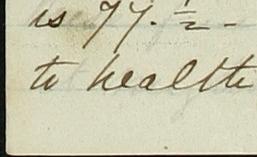 is 77. ½ -
to health